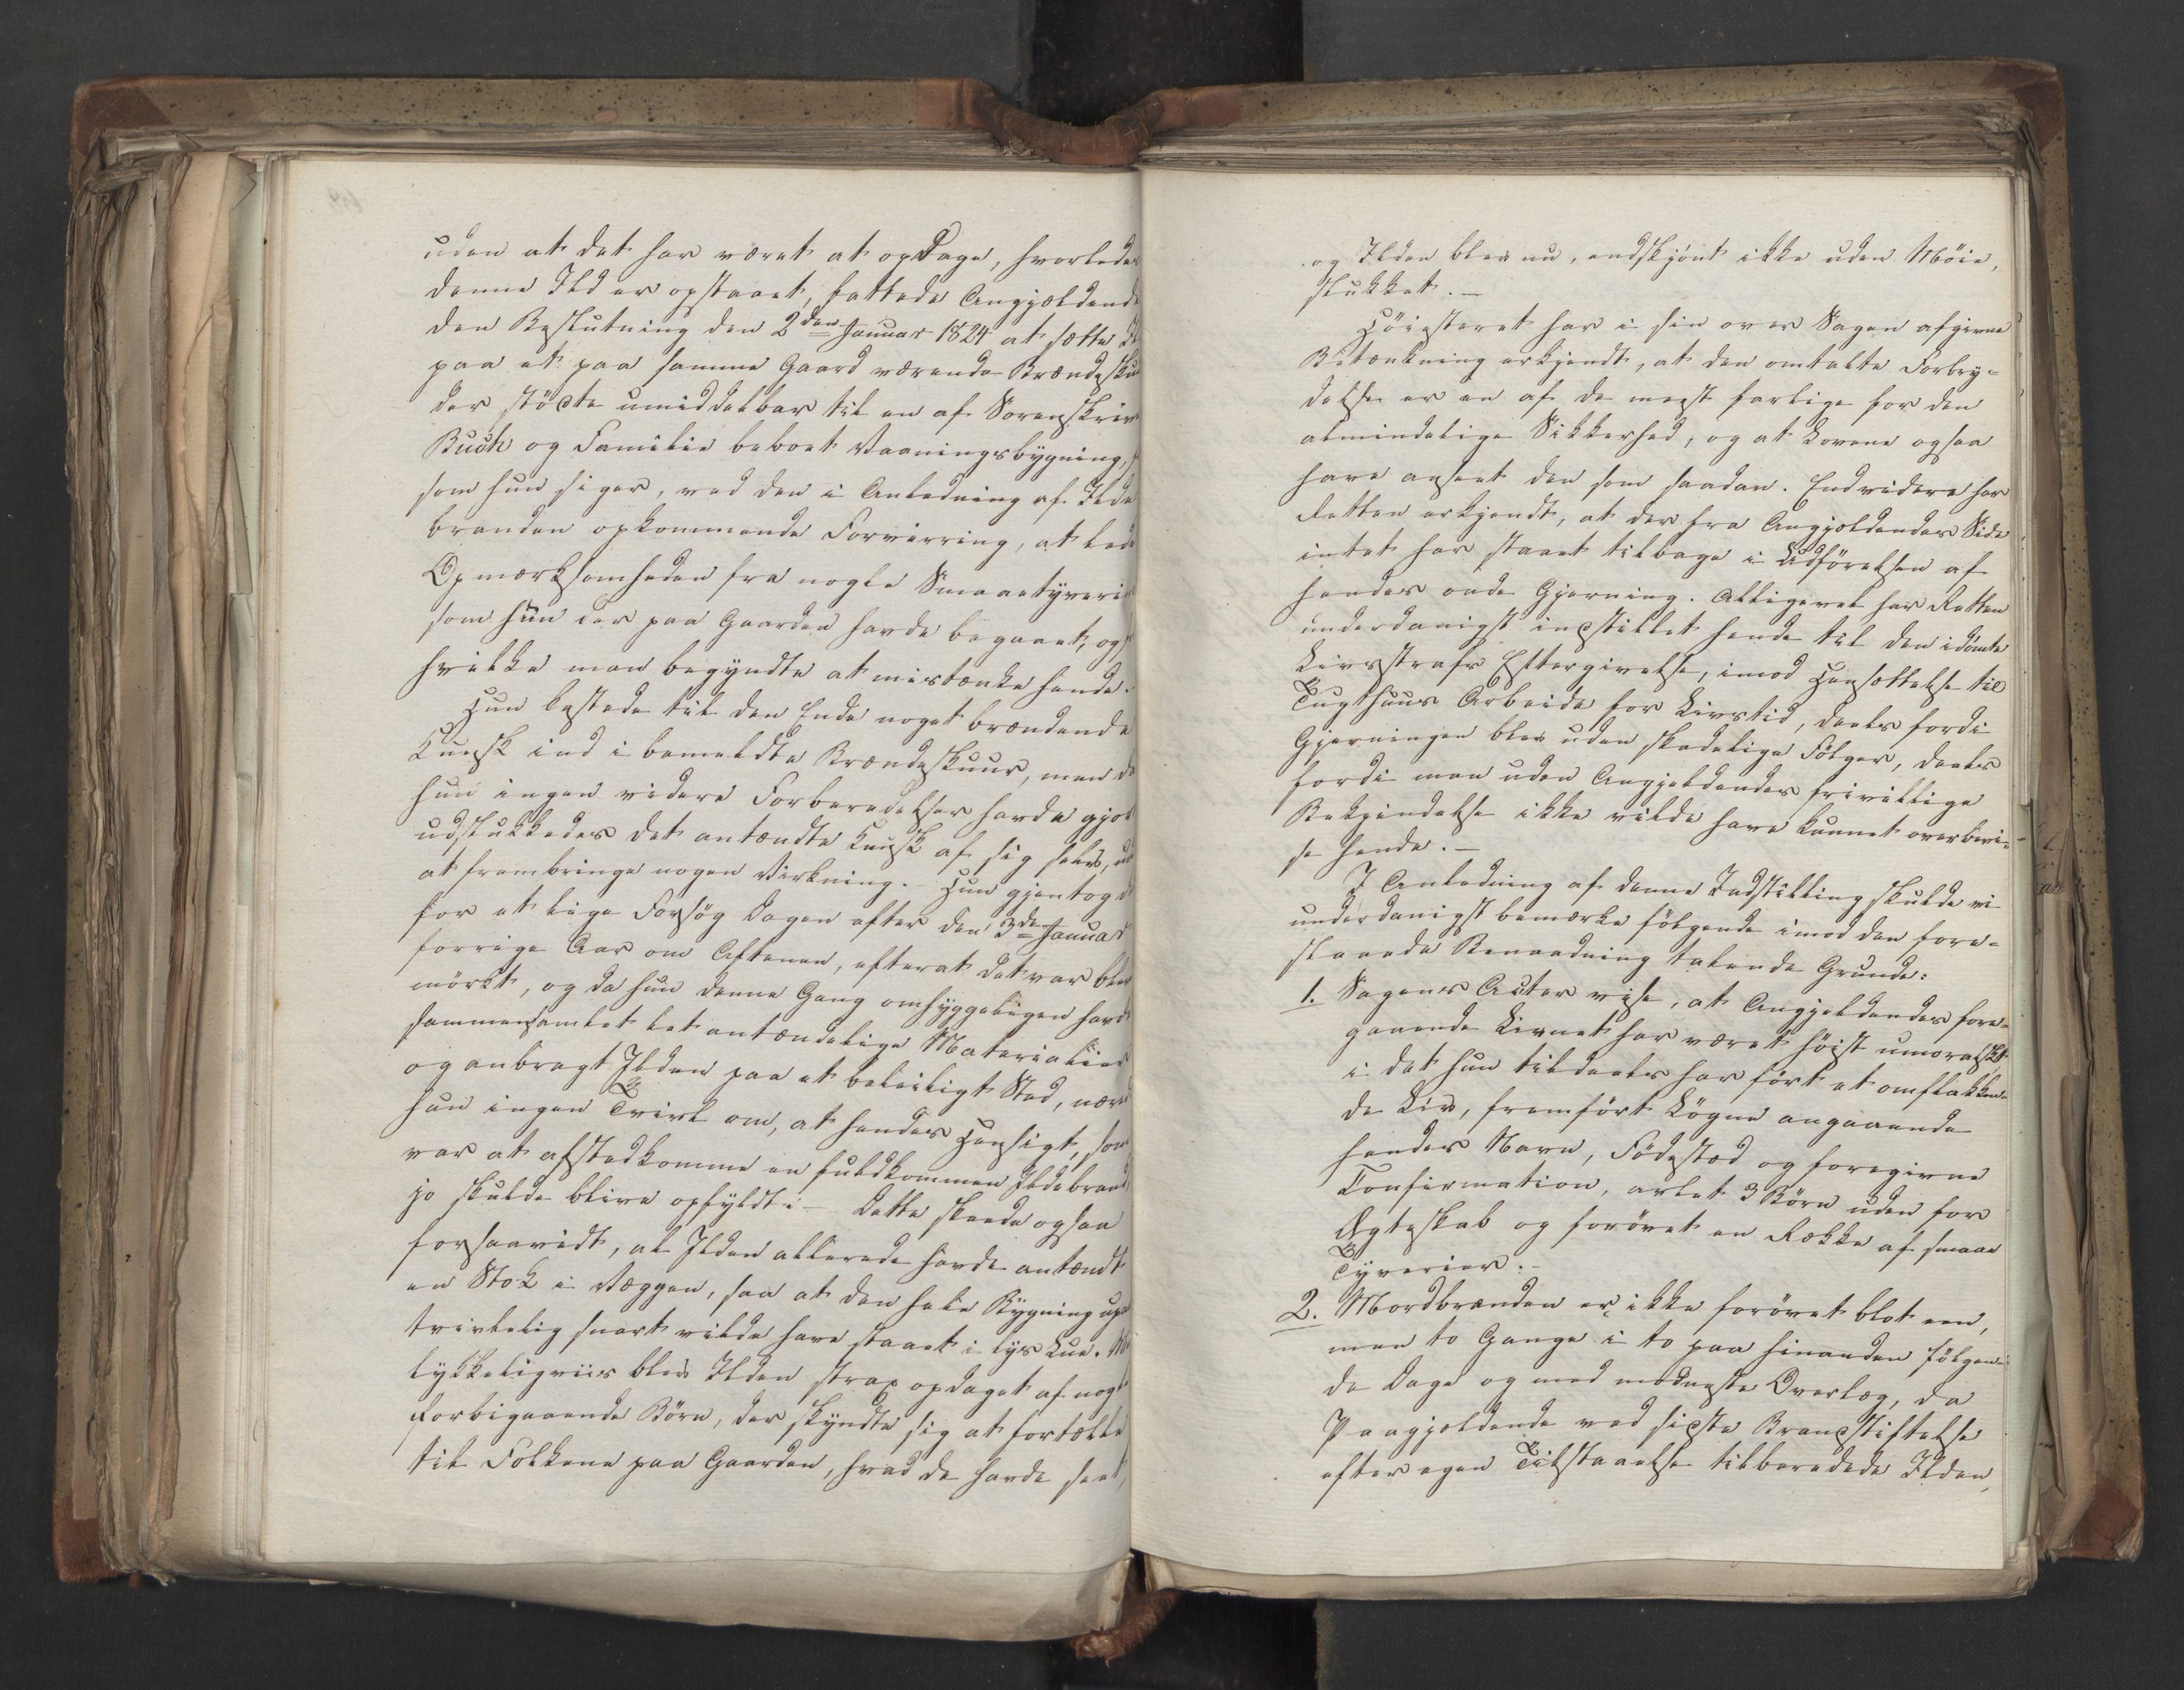 uden at det har været at opdage, hvorledes
denne Ild er opstaaet, fattede Angjældende
den Beslutning den 2den Januar 1824 at sætte
paa et paa samme Gaard værende Brændeskuur
der stödte umiddelbar til en af Sorenskriv
Buch og Familie beboet Vaaningsbygning,
som hun siger, ved den i Anledning af Ilde
branden opkommende Forvirring, at lede
Opmærksomheden fra nogle Smaaetyverier
som hun der paa Gaarden havde begaaet, og
hvilke man begyndte at mistænke hende.
Hun kastede til den Ende noget brændende
Knusk ind i bemeldte Brændeskuur, men da
hun ingen videre Forberedelser havde gjort
udslukkedes det antændte Knusk af sig selv, ud
at frembringe nogen Virkning. - Hun gjentog d
for et lige Forsög Dagen efter den 3de Januar
forrige Aar om Aftenen, efterat det var blev
mörkt, og da hun denne Gang omhyggeligen havde
sammensamlet let antændelige Materialier
og anbragt Ilden paa et beleiligt Sted, nærede
hun ingen Tvivl om, at hendes Hensigt, som
var at afstedkomme en fuldkommen Ildebrand,
jo skulde blive opfyldt: - Dette skeede ogsaa
forsaavidt, at Ilden allerede havde antændt
en Stok i Væggen, saa at den hele Bygning
tvivlelig snart vilde have staaet i lys Lue.
lykkeligviis blev Ilden strax opdaget af nogle
forbigaaende Börn, der skyndte sig at fortælle
til Folkene paa Gaarden, hvad de havde seet,
og Ilden blev nu, endskjönt ikke uden Möie,
slukket. -
Höiesteret har i sin over Sagen afgivne
Betænkning erkjendt, at den omtalte Forbry-
delse er en af de meest farlige for den
almindelige Sikkerhed, og at Lovene ogsaa
have anseet den som saadan. Endvidere har
Retten erkjendt, at der fra Angjældendes Side
intet har staaet tilbage i Udförelsen af
hendes onde Gjerning. Alligevel har Retten
underdanigst indstillet hende til den idömte
Livsstrafs Eftergivelse, imod Hensættelse til
Tugthuus Arbeide for Livstid, deels fordi
Gjerningen blev uden skadelige Fölger, deels
fordi man uden Angjeldendes frivillige
Bekjendelse ikke vilde have kunnet overbevi-
se hende. -
I Anledning af denne Indstilling skulde vi
underdanigst bemærke fölgende imod den fore-
slaaede Benaadning talende Grunde:
1. Sagens Acter vise, at Angjeldendes fore-
gaaende Levnet har været höist umoralsk,
i det hun tildeels har fört et omflakken-
de Liv, fremfört Lögne angaaende
hendes Navn, Födested og foregivne
Confirmation, avlet 3 Börn uden for
Ægteskab og forövet en Række af smaae
Tyverier. -
2. Mordbranden er ikke forövet blot een,
men to Gange i to paa hinanden fölgen-
de Dage og med modneste Overlæg, da
Paagjeldende ved sidste Brandstiftelse
efter egen Tilstaaelse tilberedede Ilden,